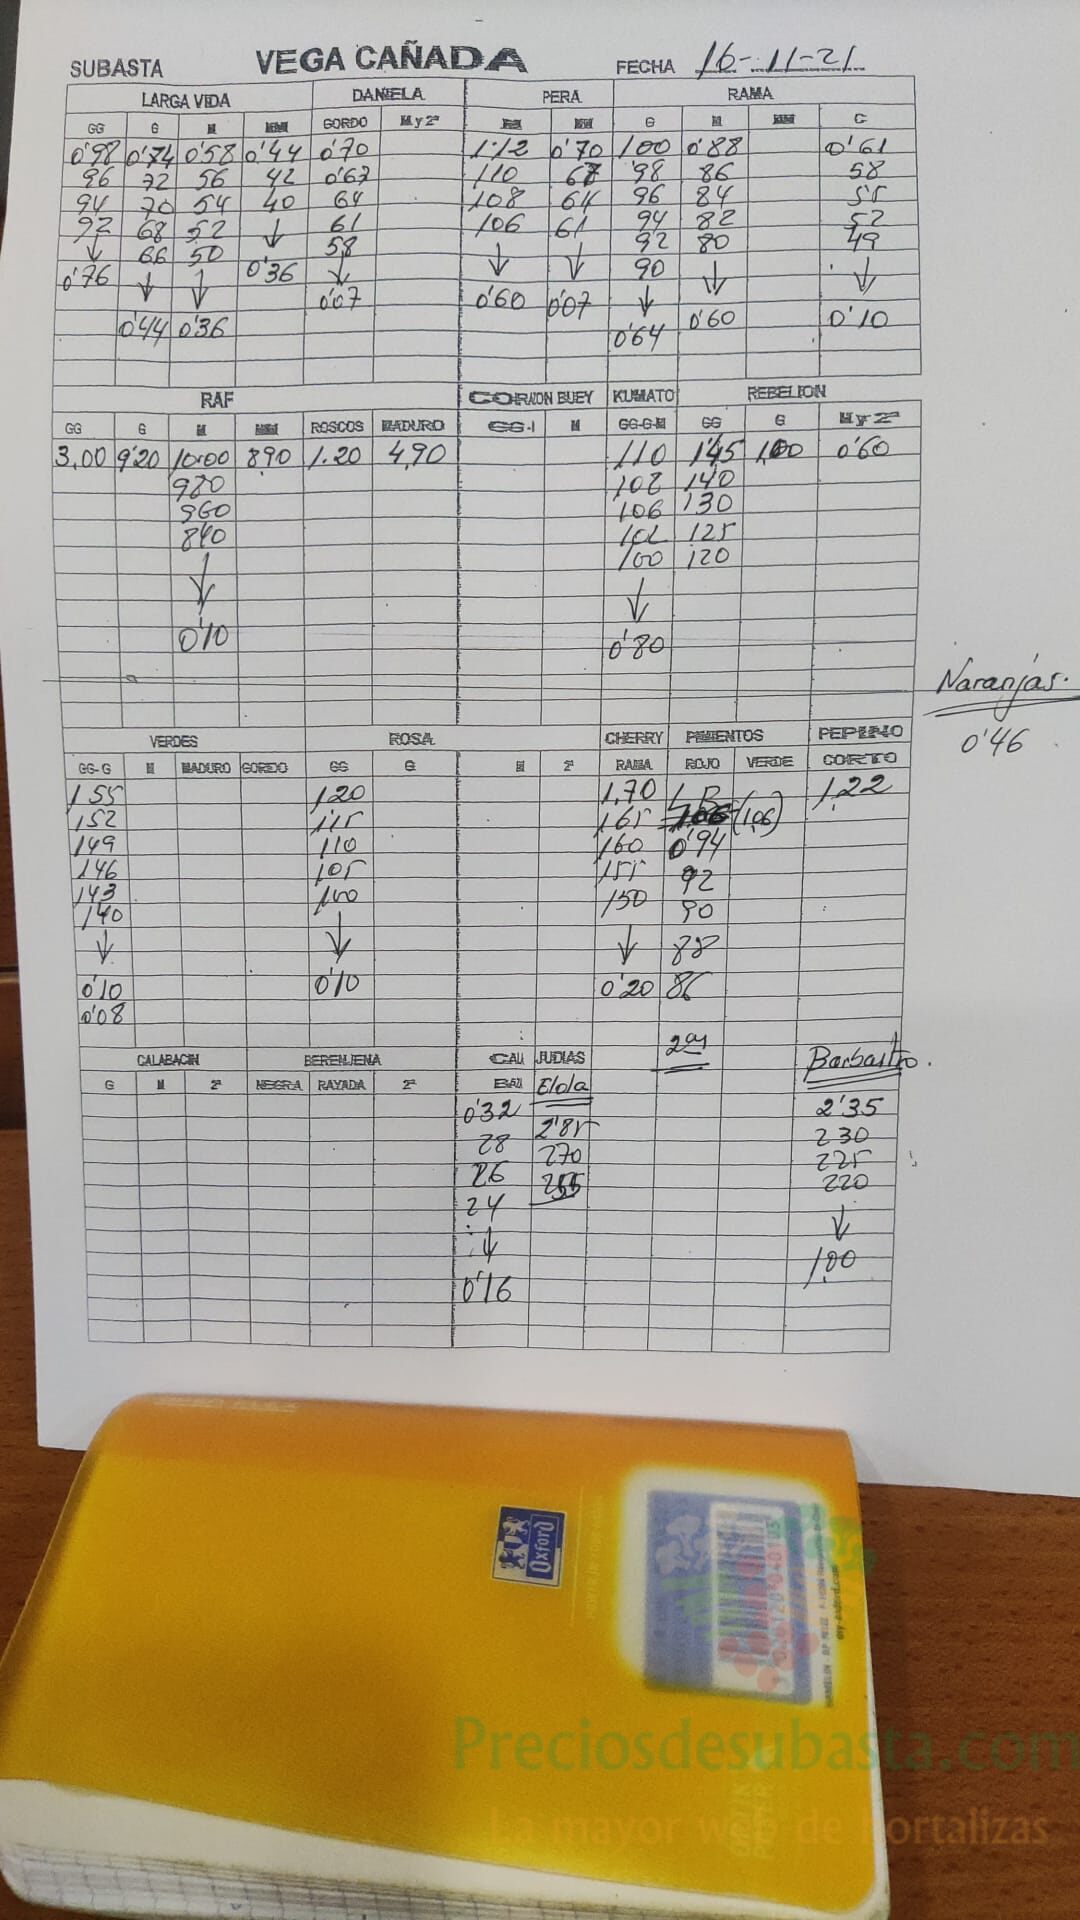 SUBASTA VEGA CAÑADA FECHA 16-11-21
LARGA VIDA DANIELA PERA RAMA
GG G M MM GORDO M y 2ª M MM G M MM C
0'98 0'74 0'58 0'44 0'70 1'12 0'70 100 0'88 0'61
96 72 56 42 0'67 110 67 98 86 58
94 70 54 40 64 108 64 96 84 55
92 68 52 ↓ 61 106 61 94 82 52
↓ 66 50 58 ↓ ↓ 92 80 49
0'76 ↓ ↓ 0'36 ↓ 90 ↓ ↓
0'07 0'60 0'07 ↓
0'44 0'36 0'64 0'60 0'10
RAF CORAZON BUEY KUMATO REBELION
GG G M MM ROSCOS MADURO GG-1 M GG-G-M GG G M y 2ª
3,00 9'20 10'00 890 1.20 4,90 110 1'45 1,00 0'60
980 108 140
960 106 130
840 102 125
↓ 100 120
↓
0'10 0'80
Naranjas.
0'46
VERDES ROSA CHERRY PIMIENTOS PEPINO
GG-G M MADURO GORDO GG G M 2ª RAMA ROJO VERDE CORTO
155 120 1,70 LB 1,22
152 115 165 (1,06)
149 110 160 0'94
146 105 155 92
143 100 150 90
140
↓ ↓ ↓ 88
0'10 0'10 0'20 86
0'08
CALABACIN BERENJENA CAL JUDIAS 2as Barbastro.
G M 2ª NEGRA RAYADA 2ª BAL Elda
0'32 2'85 2'35
28 270 230
26 255 225
24 220
↓ ↓
0'16 1,00
Oxford
Preciosdesubasta.com
La mayor web de hortalizas